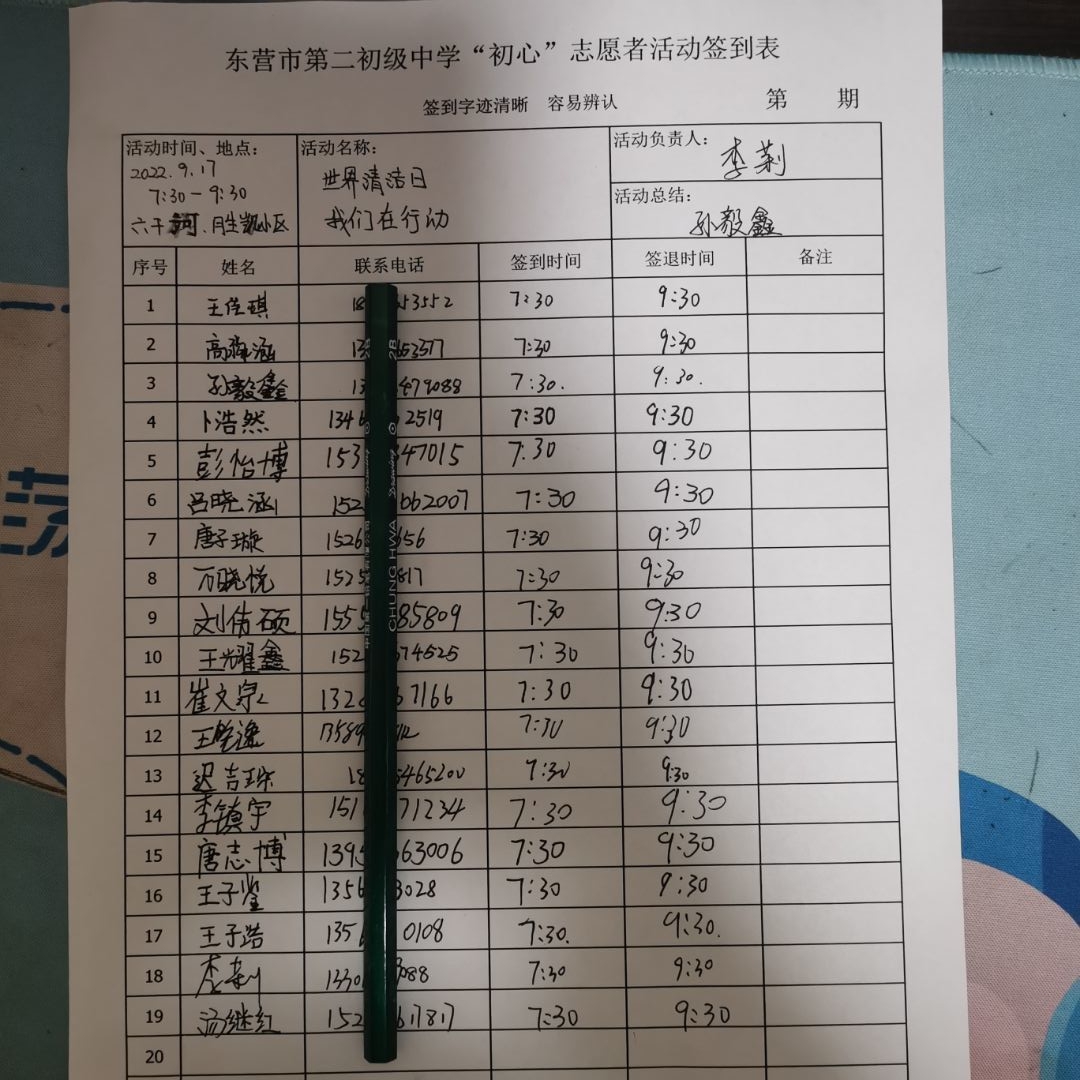 东营市第二初级中学“初心”志愿者活动签到表
签到字迹清晰 容易辨认 第 期
活动时间、地点:
2022.9.17
7:30-9:30
六干河.胜凯小区
活动名称:
世界清洁日
我们在行动
活动负责人:
李莉
活动总结:
孙毅鑫
序号 姓名 联系电话 签到时间 签退时间 备注
1 王佳琪 18 53552 7:30 9:30
2 高 涵 13 653577 7:30 9:30
3 孙毅鑫 13 479088 7:30. 9:30.
4 卜浩然 134 2519 7:30 9:30
5 彭怡博 153 47015 7:30 9:30
6 吕晓涵 152 662007 7:30 9:30
7 唐子璇 1526 656 7:30 9:30
8 万晓悦 1525 817 7:30 9:30
9 刘倩硕 155 85809 7:30 9:30
10 王耀鑫 152 674525 7:30 9:30
11 崔文 132 67166 7:30 9:30
12 王 逸 13589 7:30 9:30
13 迟吉琛 18 5465200 7:30 9:30
14 李镇宇 151 71234 7:30 9:30
15 唐志博 1395 63006 7:30 9:30
16 王子鉴 1356 3028 7:30 9:30
17 王子浩 135 0108 7:30. 9:30.
18 李莉 1330 088 7:30 9:30
19 汤继红 152 617817 7:30 9:30
20
CHUNG HWA
2B